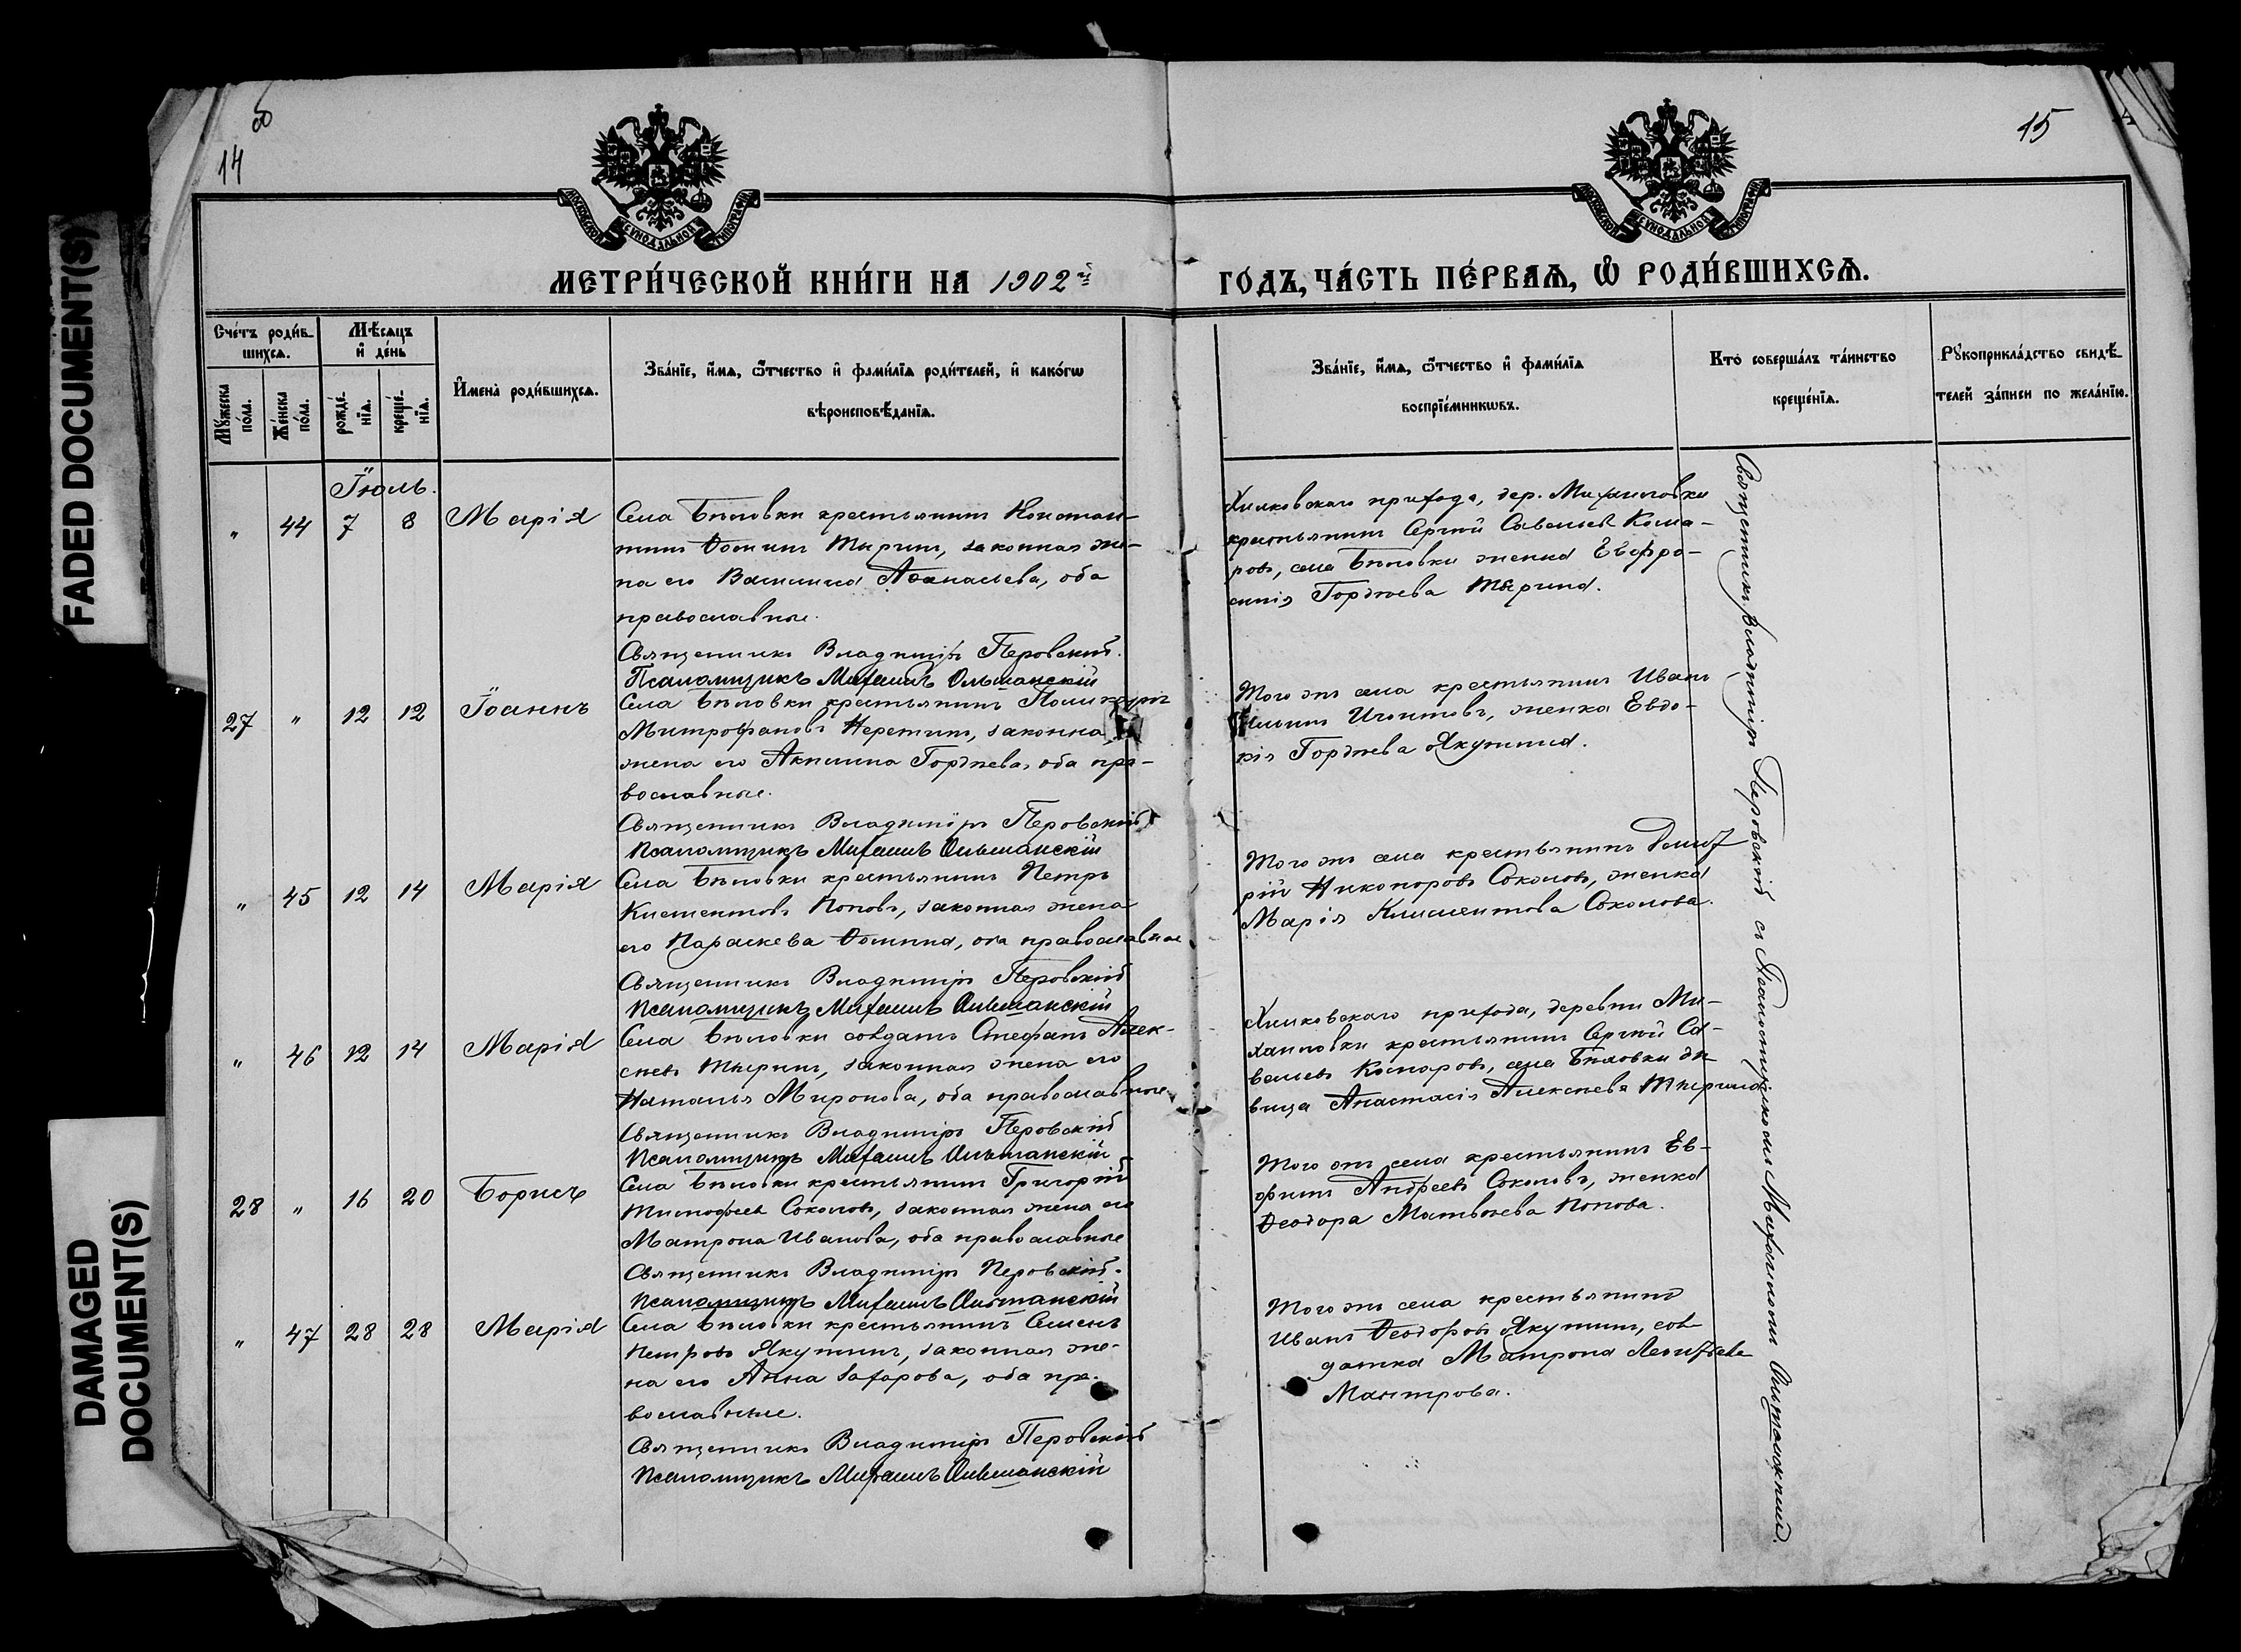 FADED DOCUMENT(S)
DAMAGED
DOCUMENT(S)
14
15
МОСКОВСКОЙ СѴНОДАЛЬНОЙ ТИПОГРАФІИ
МОСКОВСКОЙ СѴНОДАЛЬНОЙ ТИПОГРАФІИ
МЕТРИ́ЧЕСКОЙ КНИ́ГИ НА 1902й
ГО́ДЪ, ЧА́СТЬ ПЕ́РВАѦ, Ѽ РОДИ́ВШИХСѦ.
Сче́тъ роди́в-
шихсѧ.
Мѣ́сѧцъ
и҆ де́нь
Мꙋ́жеска
по́ла.
Же́нска
по́ла.
рожде́-
нїѧ.
креще́-
нїѧ.
И҆мена̀ роди́вшихсѧ.
Зва́нїе, и҆́мѧ, ѻ҆́тчество и҆ фами́лїѧ роди́телей, и҆ како́гѡ
вѣроисповѣ́данїѧ.
Зва́нїе, и҆́мѧ, ѻ҆́тчество и҆ фами́лїѧ
воспрїе́мникѡвъ.
Кто̀ соверша́лъ та́инство
креще́нїѧ.
Рꙋкоприкла́дство свидѣ́-
телей за́писи по жела́нїю.
Іюль.
" 44 7 8 Марія
Села Бѣловки крестьянинъ Констан-
тинъ Ѳоминъ Тыринъ, законная же-
на его Василиса Аѳанасьева, оба
православные.
Священникъ Владиміръ Перовскій.
Псаломщикъ Михаилъ Ольшанскій
Хилковскаго прихода, дер. Михаиловки
крестьянинъ Сергій Савельевъ Кома-
ровъ, села Бѣловки женка Евфро-
синія Гордѣева Тырина.
27 " 12 12 Іоаннъ
Села Бѣловки крестьянинъ Поликарпъ
Митрофановъ Неретинъ, законная
жена его Акилина Гордѣева, оба пра-
вославные.
Священникъ Владиміръ Перовскій
Псаломщикъ Михаилъ Ольшанскій
Того же села крестьянинъ Иванъ
женка Евдо-
кія Гордѣева Якушина.
" 45 12 14 Марія
Села Бѣловки крестьянинъ Петръ
Климентовъ Поповъ, законная жена
его Параскева Ѳомина, оба православные
Священникъ Владиміръ Перовскій
Псаломщикъ Михаилъ Ольшанскій
Того же села крестьянинъ Димит
рій Никоноровъ Соколовъ, женка
Марія Климентова Соколова.
" 46 12 14 Марія
Села Бѣловки солдатъ Стефанъ Алек-
сѣевъ Тыринъ, законная жена его
Наталья Миронова, оба православные.
Священникъ Владиміръ Перовскій
Псаломщикъ Михаилъ Ольшанскій
Хилковскаго прихода, деревни Ми-
хаиловки крестьянинъ Сергій Са-
вельевъ Комаровъ, села Бѣловки дѣ
вица Анастасія Алексѣева Тырина
28 " 16 20 Борисъ
Села Бѣловки крестьянинъ Григорій
Тимофеевъ Соколовъ, законная жена его
Матрона Иванова, оба православные
Священникъ Владиміръ Перовскій.
Псаломщикъ Михаилъ Ольшанскій
Того же села крестьянинъ Ев-
фимъ Андреевъ Соколовъ, женка
Ѳеодора Матвѣева Попова.
" 47 28 28 Марія
Села Бѣловки крестьянинъ Семенъ
Петровъ Якушинъ, законная же-
на его Анна Захарова, оба пра-
вославные.
Священникъ Владиміръ Перовскій
Псаломщикъ Михаилъ Ольшанскій
Того же села крестьянинъ
Иванъ Ѳеодоровъ Якушинъ, сол-
датка Матрона Леонтьева
Мантрова.
Священникъ Владиміръ Перовскій съ Псаломщикомъ Михаиломъ Ольшанскимъ.